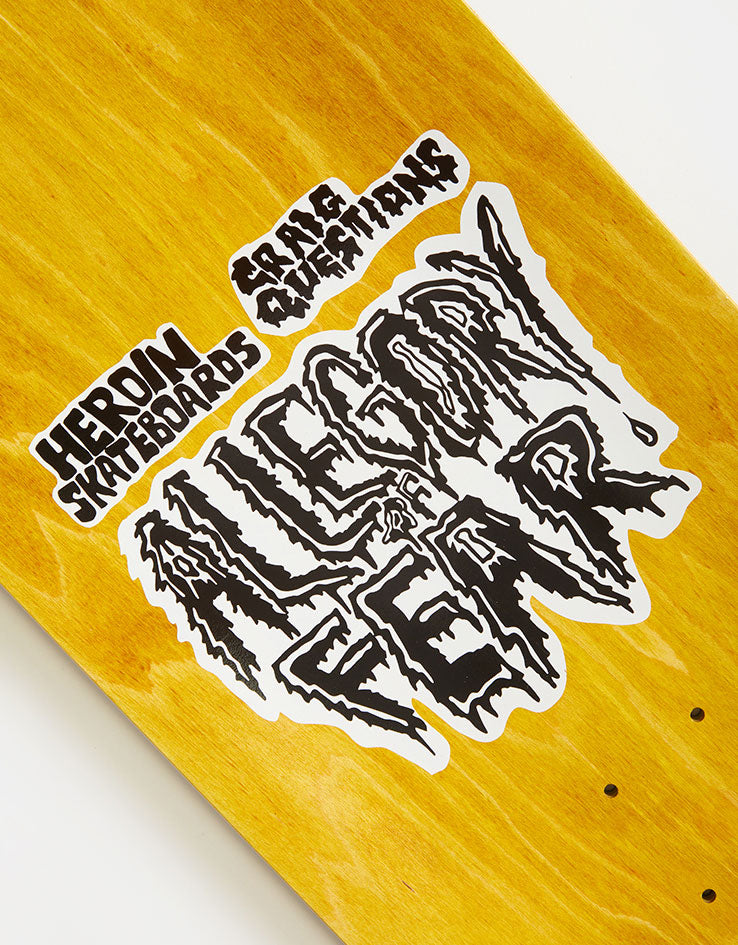 HEROIN
SKATEBOARDS
CRAIG
QUESTIONS
ALLEGORY
OF
FEAR